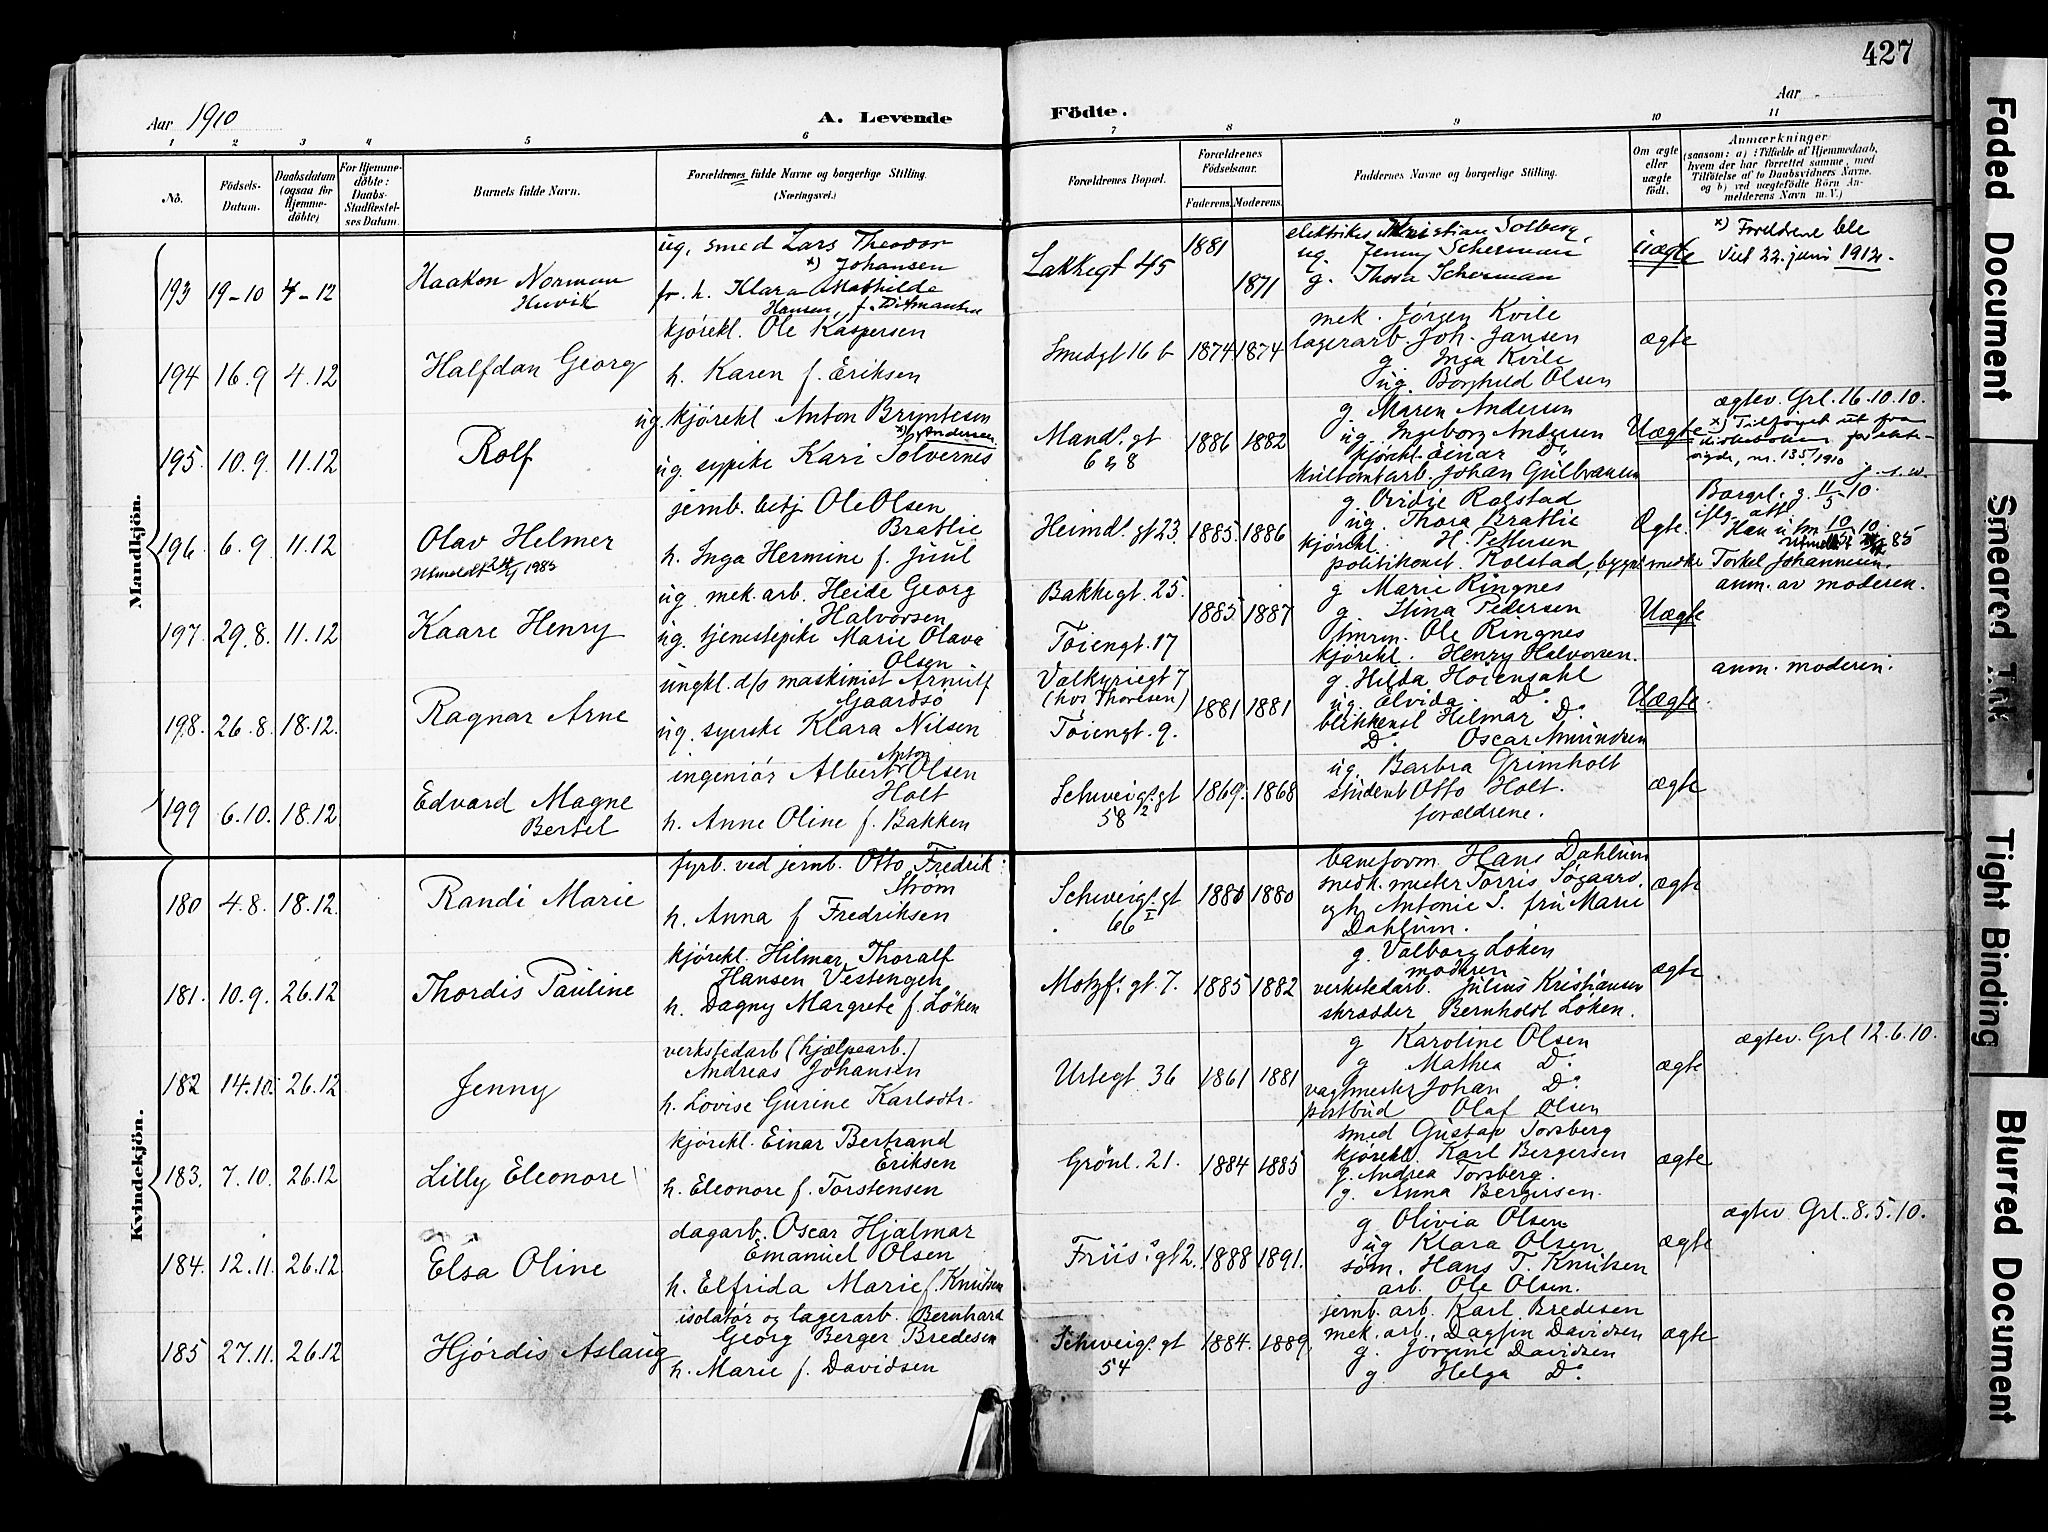 427
Aar 1910
A. Levende Födte.
Aar
1 2 3 4 5 6 7 8 9 10 11
No.
Födsels-Datum.
Daabsdatum (ogsaa for Hjemme-döbte)
For Hjemme-döbte: Daabs-Stadfæstel-ses Datum.
Barnets fulde Navn.
Forældrenes fulde Navne og borgerlige Stilling. (Næringsvei.)
Forældrenes Bopæl.
Forældrenes Födselsaar.
Faderens. Moderens.
Faddernes Navne og borgerlige Stilling.
Om ægte eller uægte födt.
Anmærkninger
(saasom: a) i Tilfælde af Hjemmedaab,
hvem der har forrettet samme, med
Tilföielse af to Daabsvidners Navne.
og b) ved uægtefödte Börn An-
melderens Navn m. V.)
Mandkjön.
193 19-10 4-12
Haakon Norman
Huvik
ug. smed Lars Theodor
x) Johansen
fr. h. Klara Mathilde
Hansen, f. Ditmansen
Lakkegt 45
1881
1871
elektriker Kristian Solberg,
ug. Jenny Scherman
g. Thora Scherman
uægte
x) Foreldrene ble
viet 22. juni 1912.
194 16.9 4.12
Halfdan Georg
kjørekl. Ole Kaspersen
h. Karen f. Eriksen
Smedgt 16 b
1874 1874
mek. Jörgen Kvile
lagerarb. Joh. Jansen
g. Inga Kvile
ug. Borghild Olsen
ægte
195. 10.9. 11.12
Rolf
ug. kjørekl Anton Bryntesen
x) Andersen
ug. sypike Kari Solvernes
Mandl. gt
6 & 8
1886 1882
g. Maren Andersen
ug. Ingeborg Andersen
kjørekl. Einar Do
kultomtarb. Johan Gulbransen
Uægte
ægtev. Grl. 16.10.10.
x) Tilføyet ut fra
nr. 135/1910
196. 6.9 11.12
Olav Helmer
Utmeldt 24/4 1985
jernb. betj Ole Olsen
Bratlie
h. Inga Hermine f. Juul
Heimdl. gt 23.
1885. 1886
g. Ovidie Rolstad
ug. Thora Bratlie
kjørekl. H. Pettersen
politikonst. Rolstad,
Ægte.
Borgrl. g. 11/5 10.
iflg. att.
197. 29.8. 11.12
Kaare Henry
ug. mek. arb. Heide Georg
Halvorsen
ug. tjenestepike Marie Olava
Olsen
Bakkegt. 25.
Töiengt. 17
1885. 1887
g Marie Ringnes
g. Stina Pedersen
tmrm. Ole Ringnes
kjørekl. Henry Halvorsen.
Uægte
Torkel Johannesen.
anm. av moderen.
198. 26.8. 18.12.
Ragnar Arne
ungkl. d/s maskinist Arnulf
Gaardsö
ug. syerske Klara Nilsen
Valkyriegt 7
(hos Thoresen)
Töiengt. 9.
1881 1881
g. Hilda Hoiensahl
ug. Elvida Do
blikkensl Hilmar Do.
Do. Oscar Amundsen
Uægte.
anm. moderen.
199 6.10. 18.12.
Edvard Magne
Bertel
Anton
ingeniör Albert Olsen
Holt
h. Anne Oline f. Bakken
Schweigs. gt
58 2
1869. 1868
ug. Barbra Grimholt
student Otto Holt.
forældrene.
ægte
Kvindekjön.
180 4.8. 18.12.
Randi Marie
fyrb. ved jernb. Otto Fredrik
Ström
h. Anna f Fredriksen
Schweigs. gt
66 I
1880 1880
baneform. Hans Dahlum
snedk. mester Torris Sogaard.
Antonie S. fru Marie
Dahlum.
ægte
181. 10.9. 26.12
Thordis Pauline
kjørekl. Hilmar Thoralf
Hansen Vestengen
h. Dagny Margrete f. Löken
Motzf. gt. 7.
1885 1882
g. Valborg Löken
moderen
verkstedarb. Julius Kristiansen
skrædder Bernholdt Löken.
ægte
182 14.10. 26.12
Jenny
verkstedarb (hjælpearb.)
Andreas Johansen
h. Lovise Gurine Karlsdtr.
Urtegt 36
1861 1881
g Karoline Olsen
g Mathea Do.
vagtmester Johan Do.
postbud Olaf Olsen
ægte
ægtev. Grl 12.6.10.
183. 7.10. 26.12
Lilly Eleonore
kjørekl. Einar Bertrand
Eriksen
h. Eleonore f. Torstensen
Grönl. 21.
1884 1885
smed Gustav Torsberg
kjørekl. Karl Bergersen
g. Andrea Torsberg.
g. Anna Bergersen.
ægte
184. 12.11. 26.12
Elsa Oline
dagarb. Oscar Hjalmar
Emanuel Olsen
h. Elfrida Marie f. Knutsen
Friis. gt 2.
1888 1891.
g Olivia Olsen
ug Klara Olsen
söm. Hans T. Knutsen
arb. Ole Olsen.
ægte
ægtev Grl. 8.5.10.
185 27.11. 26.12
Hjördis Aslaug
isolatør og lagerarb. Bernhard
Georg Berger Bredesen
h. Marie f. Davidsen
Schweigs. gt
54
1884. 1889.
jernb. arb. Karl Bredesen
mek. arb. Dagfin Davidsen
g. Jorgine Davidsen
g. Helga Do.
ægte
Faded Document
Smeared Ink
Tight Binding
Blurred Document